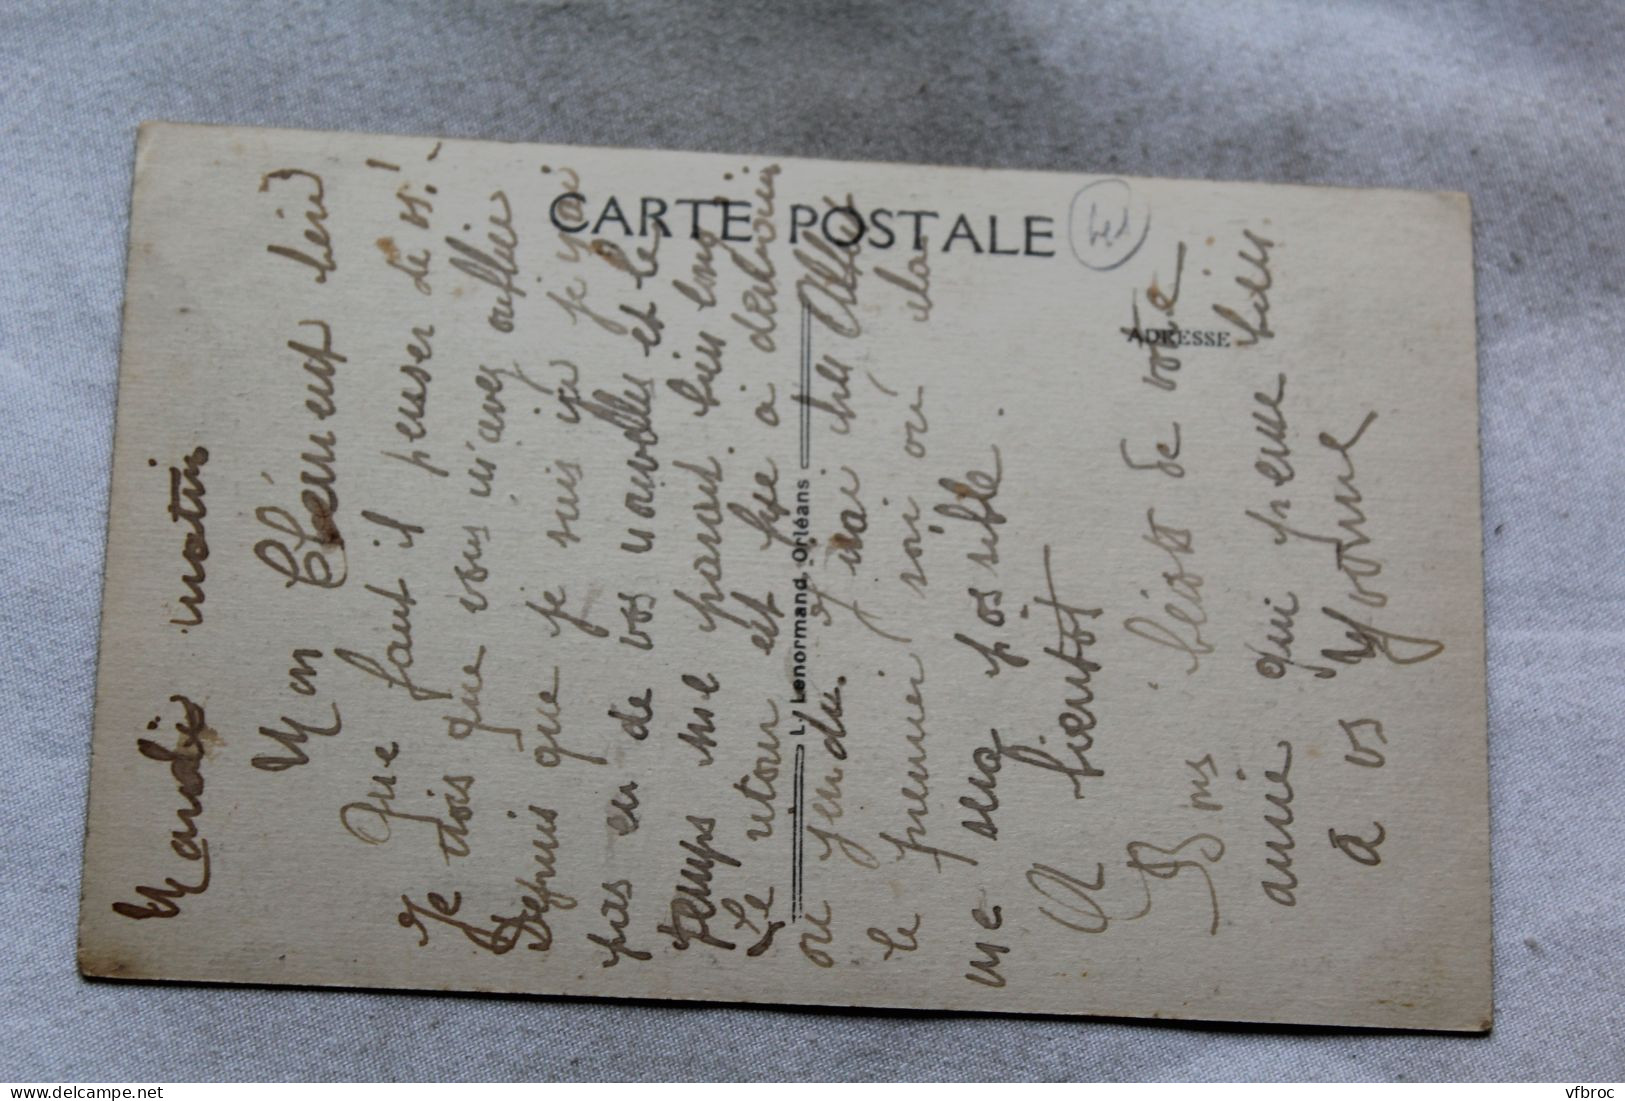 CARTE POSTALE
ADRESSE
L. Lenormand, Orléans
Mardi matin
Mon Clément béni
Que faut il penser de v.!
Je crois que vous m'avez oubliée
Depuis que je suis ici je j'ai
pas eu de vos nouvelles et le
temps me parait bien long
Le retour est fixé à
ou jeudi. J'irai chez
le premier soir où cela
me sera possible.
A bientôt
Bons bécots de votre
amie qui pense bien
à vs Yvonne
vfbroc
delcampe.net